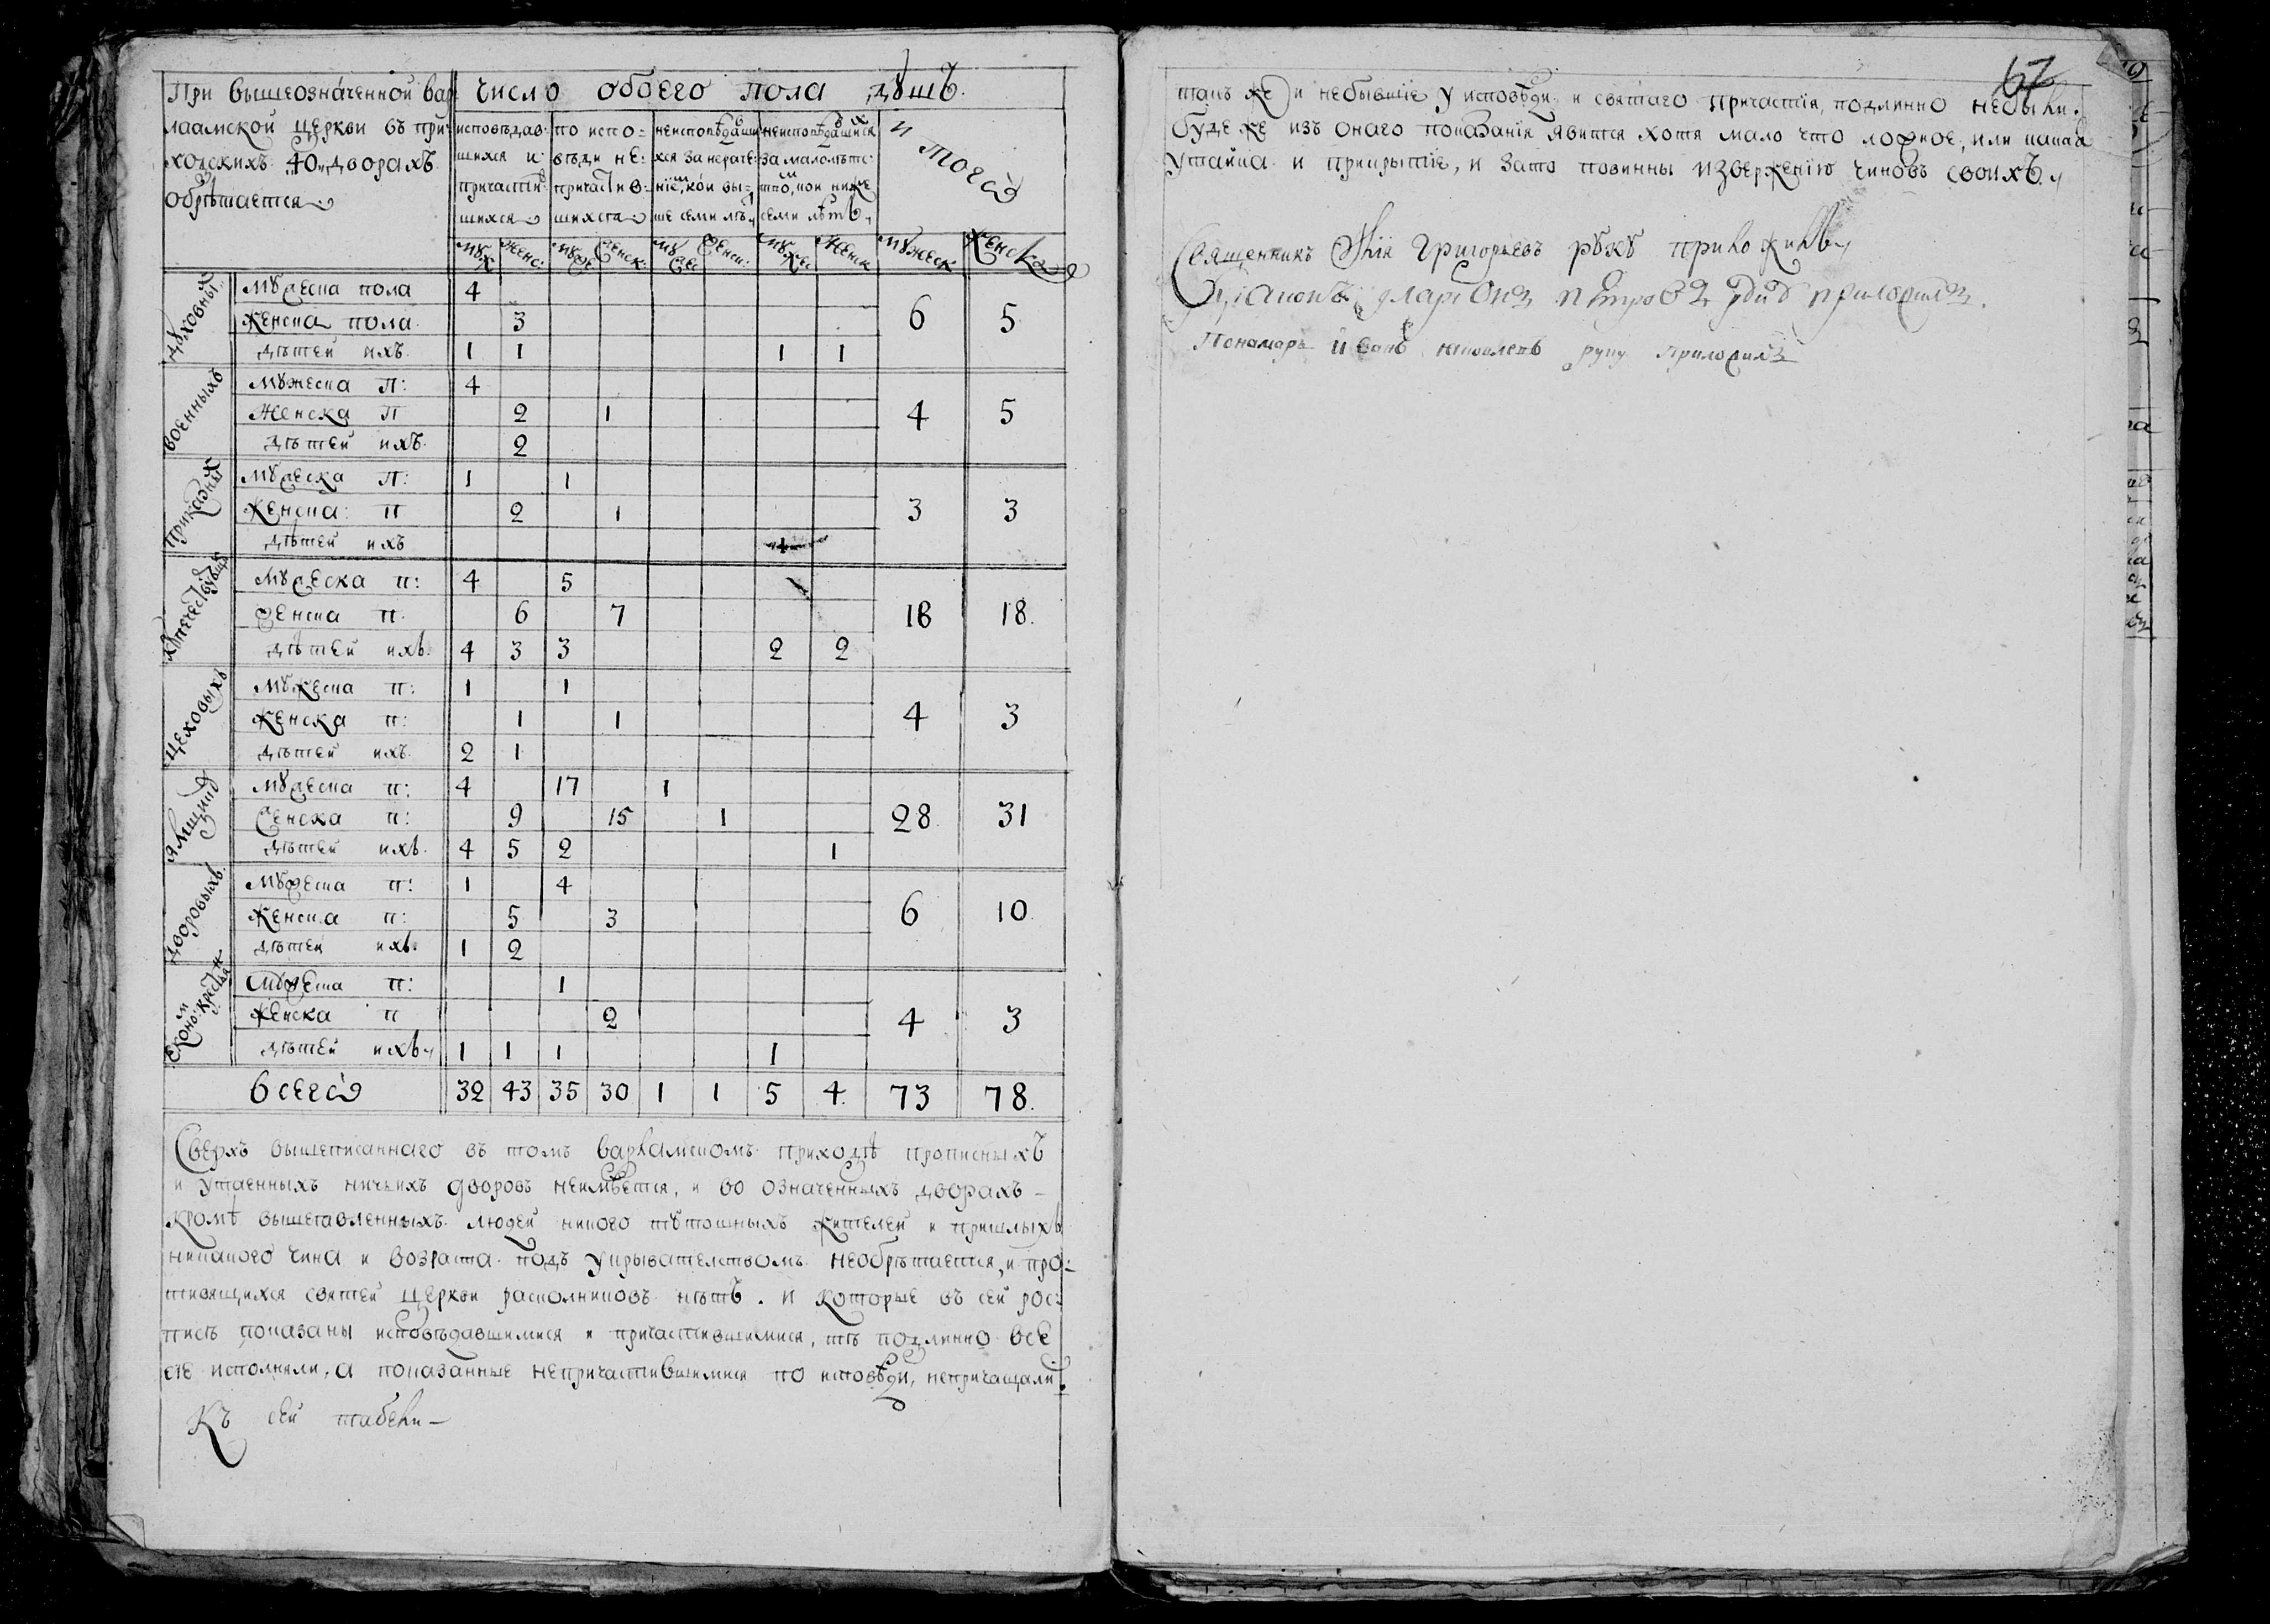 При вышеозначенной вар
лаамской церкви въ при
ходскихъ 40 дворахъ
обрѣтается
число обоего пола душъ
исповѣдав
шихся и
причастив
шихся
по испо=
вѣди не:
причастив:
шихся
неисповѣдавши
хся за нераче
ніем, кои вы=
ше семи лѣт
неисповѣдавшихся
за малолѣтс
твом, кои ниже
семи лѣтъ
итого
муж женс: муже женск: муж женск: мужес женск мужеск женска
духовных
мужеска пола 4 6 5
женска пола 3
дѣтей ихъ 1 1 1 1
военныхъ
мужеска п: 4 4 5
женска п 2 1
дѣтей ихъ 2
приказных
мужеска п: 1 1 3 3
женска: п 2 1
дѣтей ихъ
купечествующ
мужеска п: 4 5 18 18.
женска п. 6 7
дѣтей ихъ 4 3 3 2 2
цеховыхъ
мужеска п: 1 1 4 3
женска п: 1 1
дѣтей ихъ 2 1
ямщико
мужеска п: 4 17 1 28 31
женска п: 9 15 1
дѣтей ихъ 4 5 2 1
дворовыхъ
мужеска п: 1 4 6 10
женска п: 5 3
дѣтей ихъ 1 2
економ: крестьян
мужеска п: 1 4 3
женска п 2
дѣтей ихъ 1 1 1 1
всего 32 43 35 30 1 1 5 4 73 78.
Сверхъ вышеписаннаго въ томъ варламскомъ приходѣ прописныхъ
и утаенныхъ ничьихъ дворовъ неимѣется, и во означенныхъ дворахъ
кромѣ вышеявленныхъ людей никого тутошныхъ жителей и пришлыхъ
никакого чина и возраста подъ укрывателствомъ необрѣтается, и про=
тивящихся святей церкви расколниковъ нѣтъ. и которые въ сей рос:
писѣ показаны исповѣдавшимися и причастившимися, тѣ подлинно все
сіе исполнили, а показанные непричастившимися по исповѣди, непричащали
Къ сей табели
67
такъ же и небывшіе у исповѣди и святаго причастія, подлинно небыли.
буде же изъ онаго показанія явится хотя мало что ложное, или какая
утайка и прикрытіе, и зато повинны изверженію чиновъ своихъ
Священникъ Григорьевъ руку приложилъ
Діаконъ Ларионъ Петровъ руку приложилъ
Пономарь Иванъ руку приложилъ